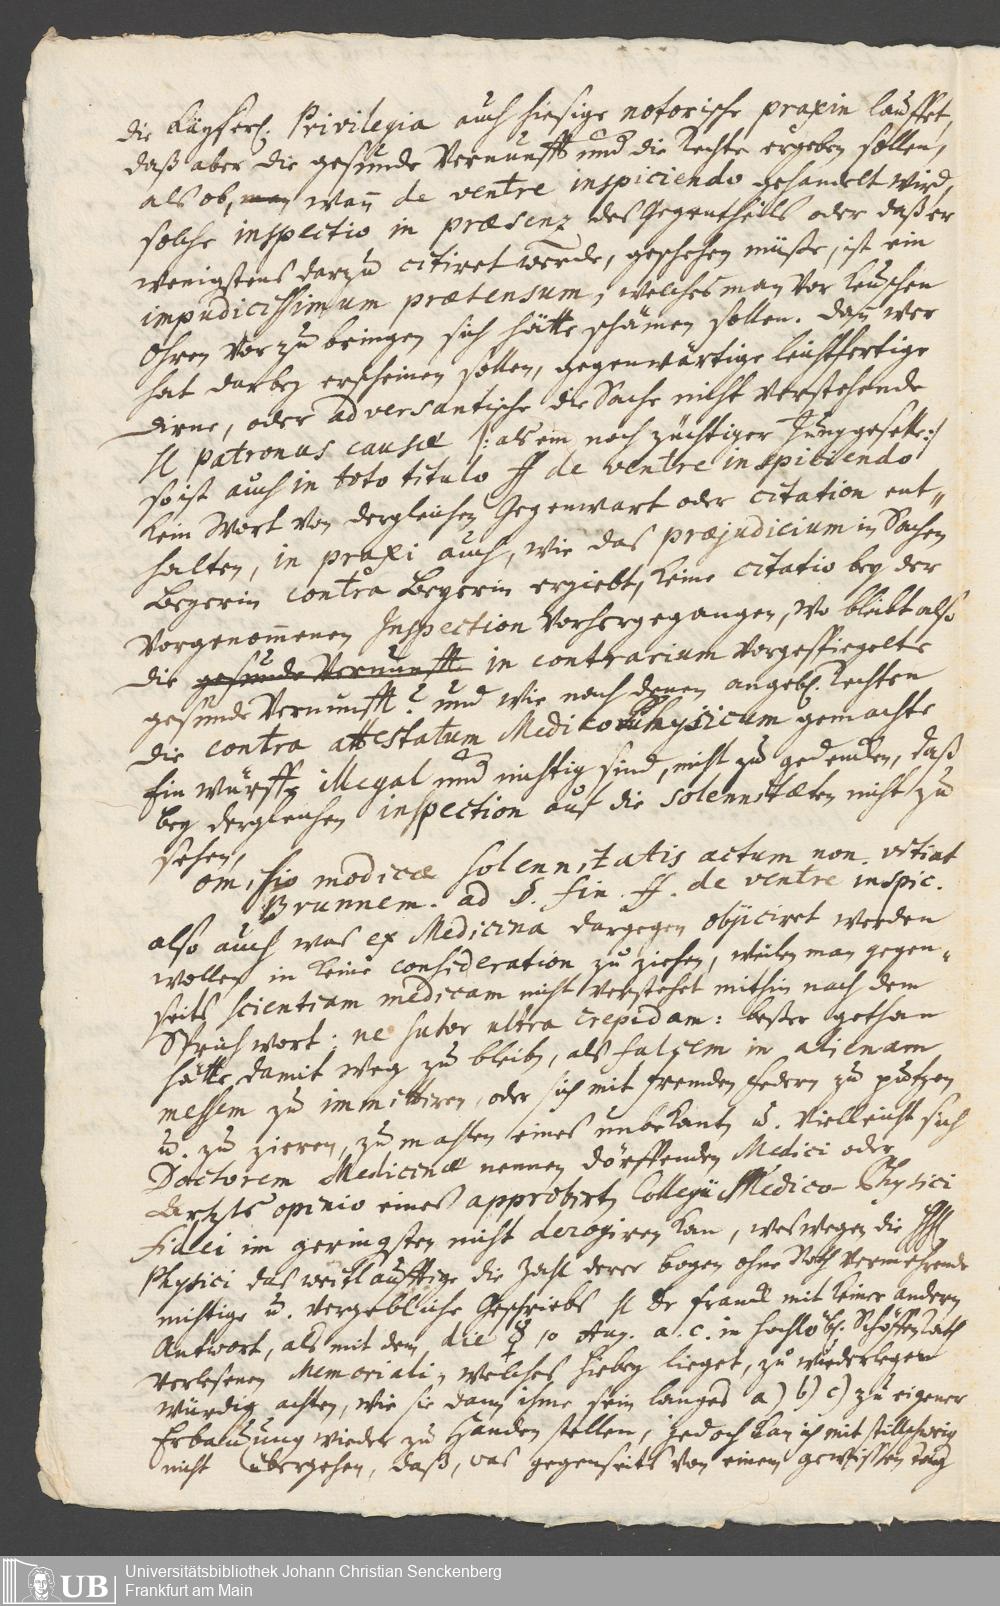 die Käyserl. Privilegia auch hiesige notorische praxin lauffet,
daß aber die gesunde Vernunfft und die Rechte ergeben sollen,
als ob, man wañ de ventre inspiciendo gehandelt wird,
solche inspectio in præsenz des Gegentheils oder daß er
wenigstens darzu citiret werde, geschehen müste, ist ein
impudicissimum prætensum, welches man vor keuschen
Ohren vorzubringen sich hätte schämen sollen. dañ wer
hat darbey erscheinen sollen, gegenwärtige leichtfertige
Dirne, oder adversantische die Sache nicht verstehende
H patronus causæ /: als ein noch züchtiger Junggeselle:/
so ist auch in toto titulo ff de ventre inspiciendo
kein Wort von dergleichen Gegenwart oder citation ent-
halten, in praxi auch, wie das præjudicium in Sachen
Beyerin contra Beyerin ergiebt, keine citatio bey der
vorgenom̃enen Inspection vorhergegangen, wo bleibt also
die gesunde Vernunfft in contrarium vorgespiegelte
gesunde Vernunfft? und wie nach denen angebl. Rechten
die contra attestatum Medico Physicum gemachte
Einwürff illegal und nichtig sind, nicht zu gedencken, daß
bey dergleichen inspection auf die solennitæten nicht zu
sehen,
omissio modicæ solennitatis actum non vitiat
Brunnem. ad §. fin. ff. de ventre inspic.
also auch was ex Medicina dargegen objiciret werden
wollen in keine consideration zu ziehen, weilen man gegen-
seits scientiam medicam nicht verstehet mithin nach dem
Sprichwort: ne sutor ultra crepidam: besser gethan
hätte, damit weg zu bleiben, als falcem in alienam
messem zu immittiren, oder sich mit fremden Federn zu putzen
u. zu zieren, zumahlen eines unbekanten u. vielleicht sich
Doctorem Medicinæ nennen dörffenden Medici oder
Artzts opinio eines approbirten Collegii Medico-Physici
fidei im geringsten nicht derogiren kan, weswegen die HH
Physici das weitläufftige die Zahl derer bogen ohne Noth vermehrende
nichtige u. vergebliche Geschriebs H Dr Franck mit keiner andern
Antwort, als mit dem, die ☿ 10 Aug. a. c. in hochlöbl. Schöffen Rath
verlesenen Memoriali, welches hiebey lieget, zu wiederlegen
würdig achten, wie sie dann ihme sein langes a) b) c) zu eigener
Erbauung wieder zu Handen stellen, jedoch kan ich mit stillschweig
nicht übergehen, daß, was gegenseits von einem gewissen
Universitätsbibliothek Johann Christian Senckenberg
Frankfurt am Main
UB